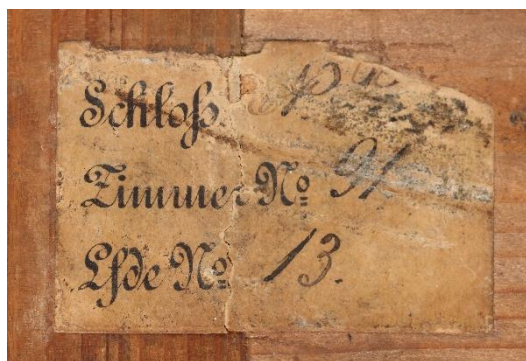 Schloß
Zimmer No 91
Lfde No 13.